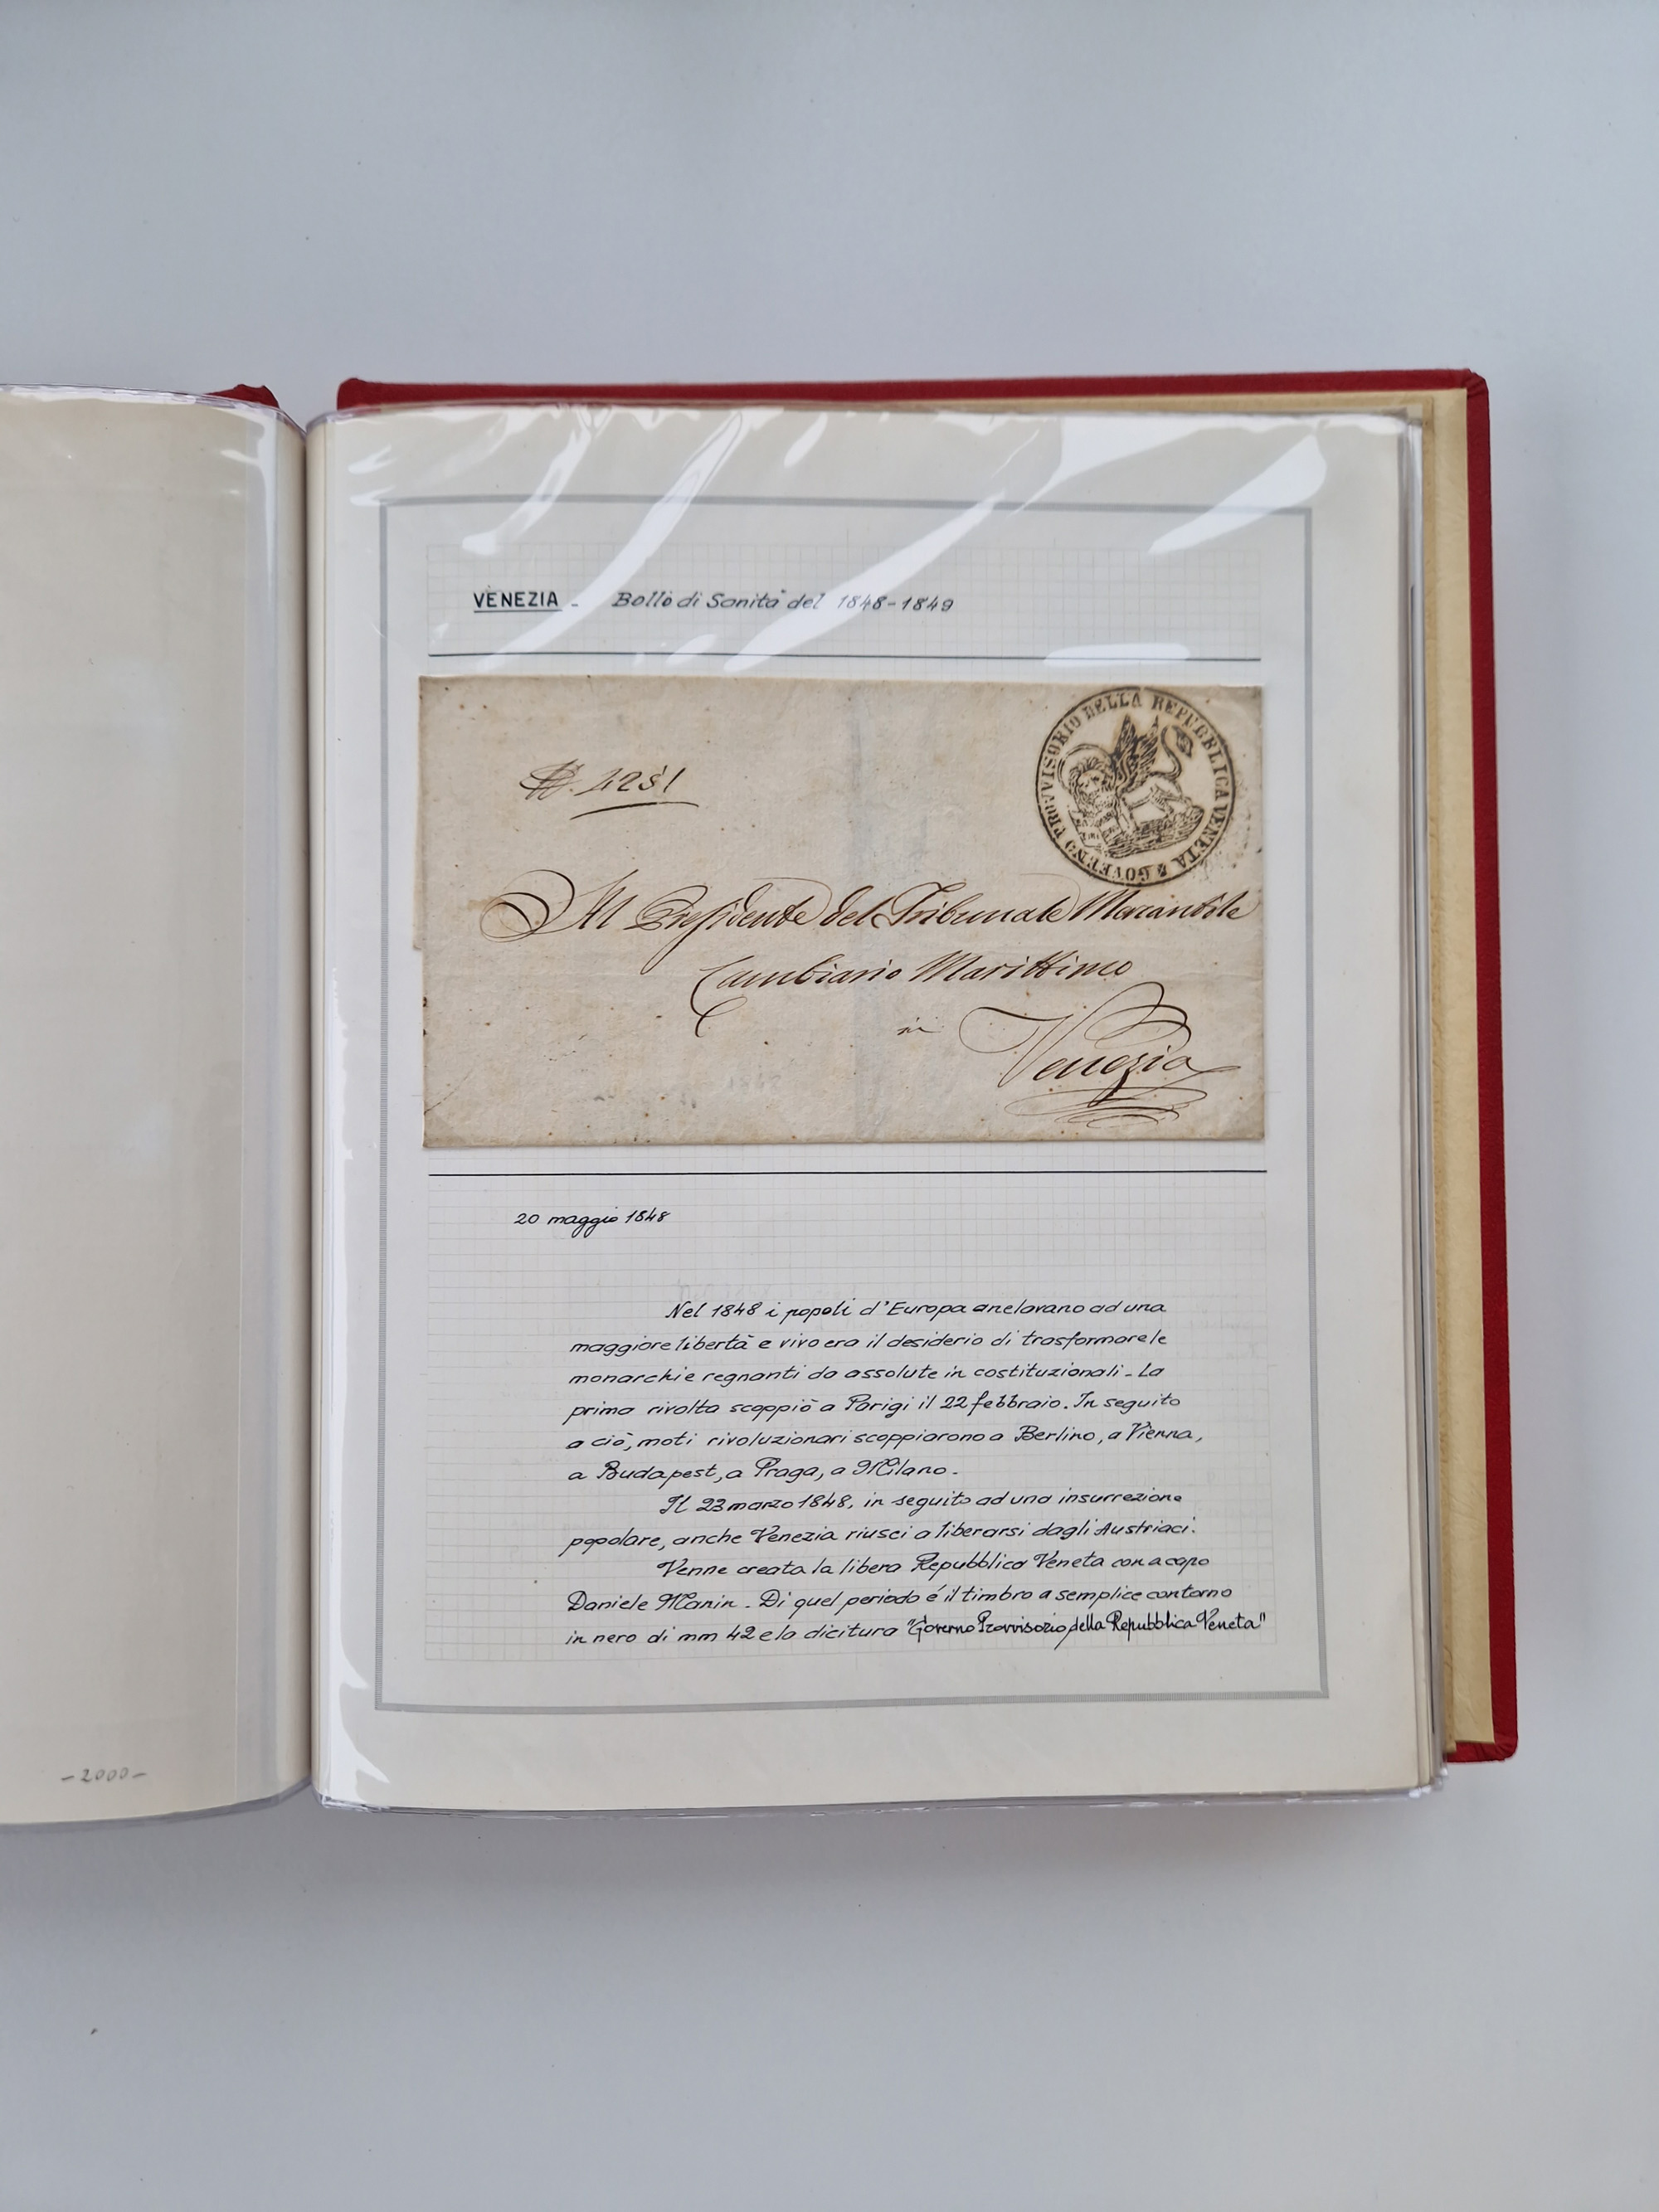 VENEZIA - Bollo di Sanità del 1848-1849
GOVERNO PROVVISORIO DELLA REPUBBLICA VENETA
N. 4281
Al Presidente del Tribunale Marcantile
Cambiario Marittimo
in Venezia
20 maggio 1848
Nel 1848 i popoli d'Europa anelavano ad una
maggiore libertà e vivo era il desiderio di trasformare le
monarchie regnanti da assolute in costituzionali - La
prima rivolta scoppiò a Parigi il 22 febbraio. In seguito
a ciò, moti rivoluzionari scoppiarono a Berlino, a Vienna,
a Budapest, a Praga, a Milano.
Il 23 marzo 1848, in seguito ad una insurrezione
popolare, anche Venezia riusci a liberarsi dagli Austriaci.
Venne creata la libera Repubblica Veneta con a capo
Daniele Manin - Di quel periodo é il timbro a semplice contorno
in nero di mm 42 e la dicitura "Governo Provvisorio della Repubblica Veneta"
-2000-